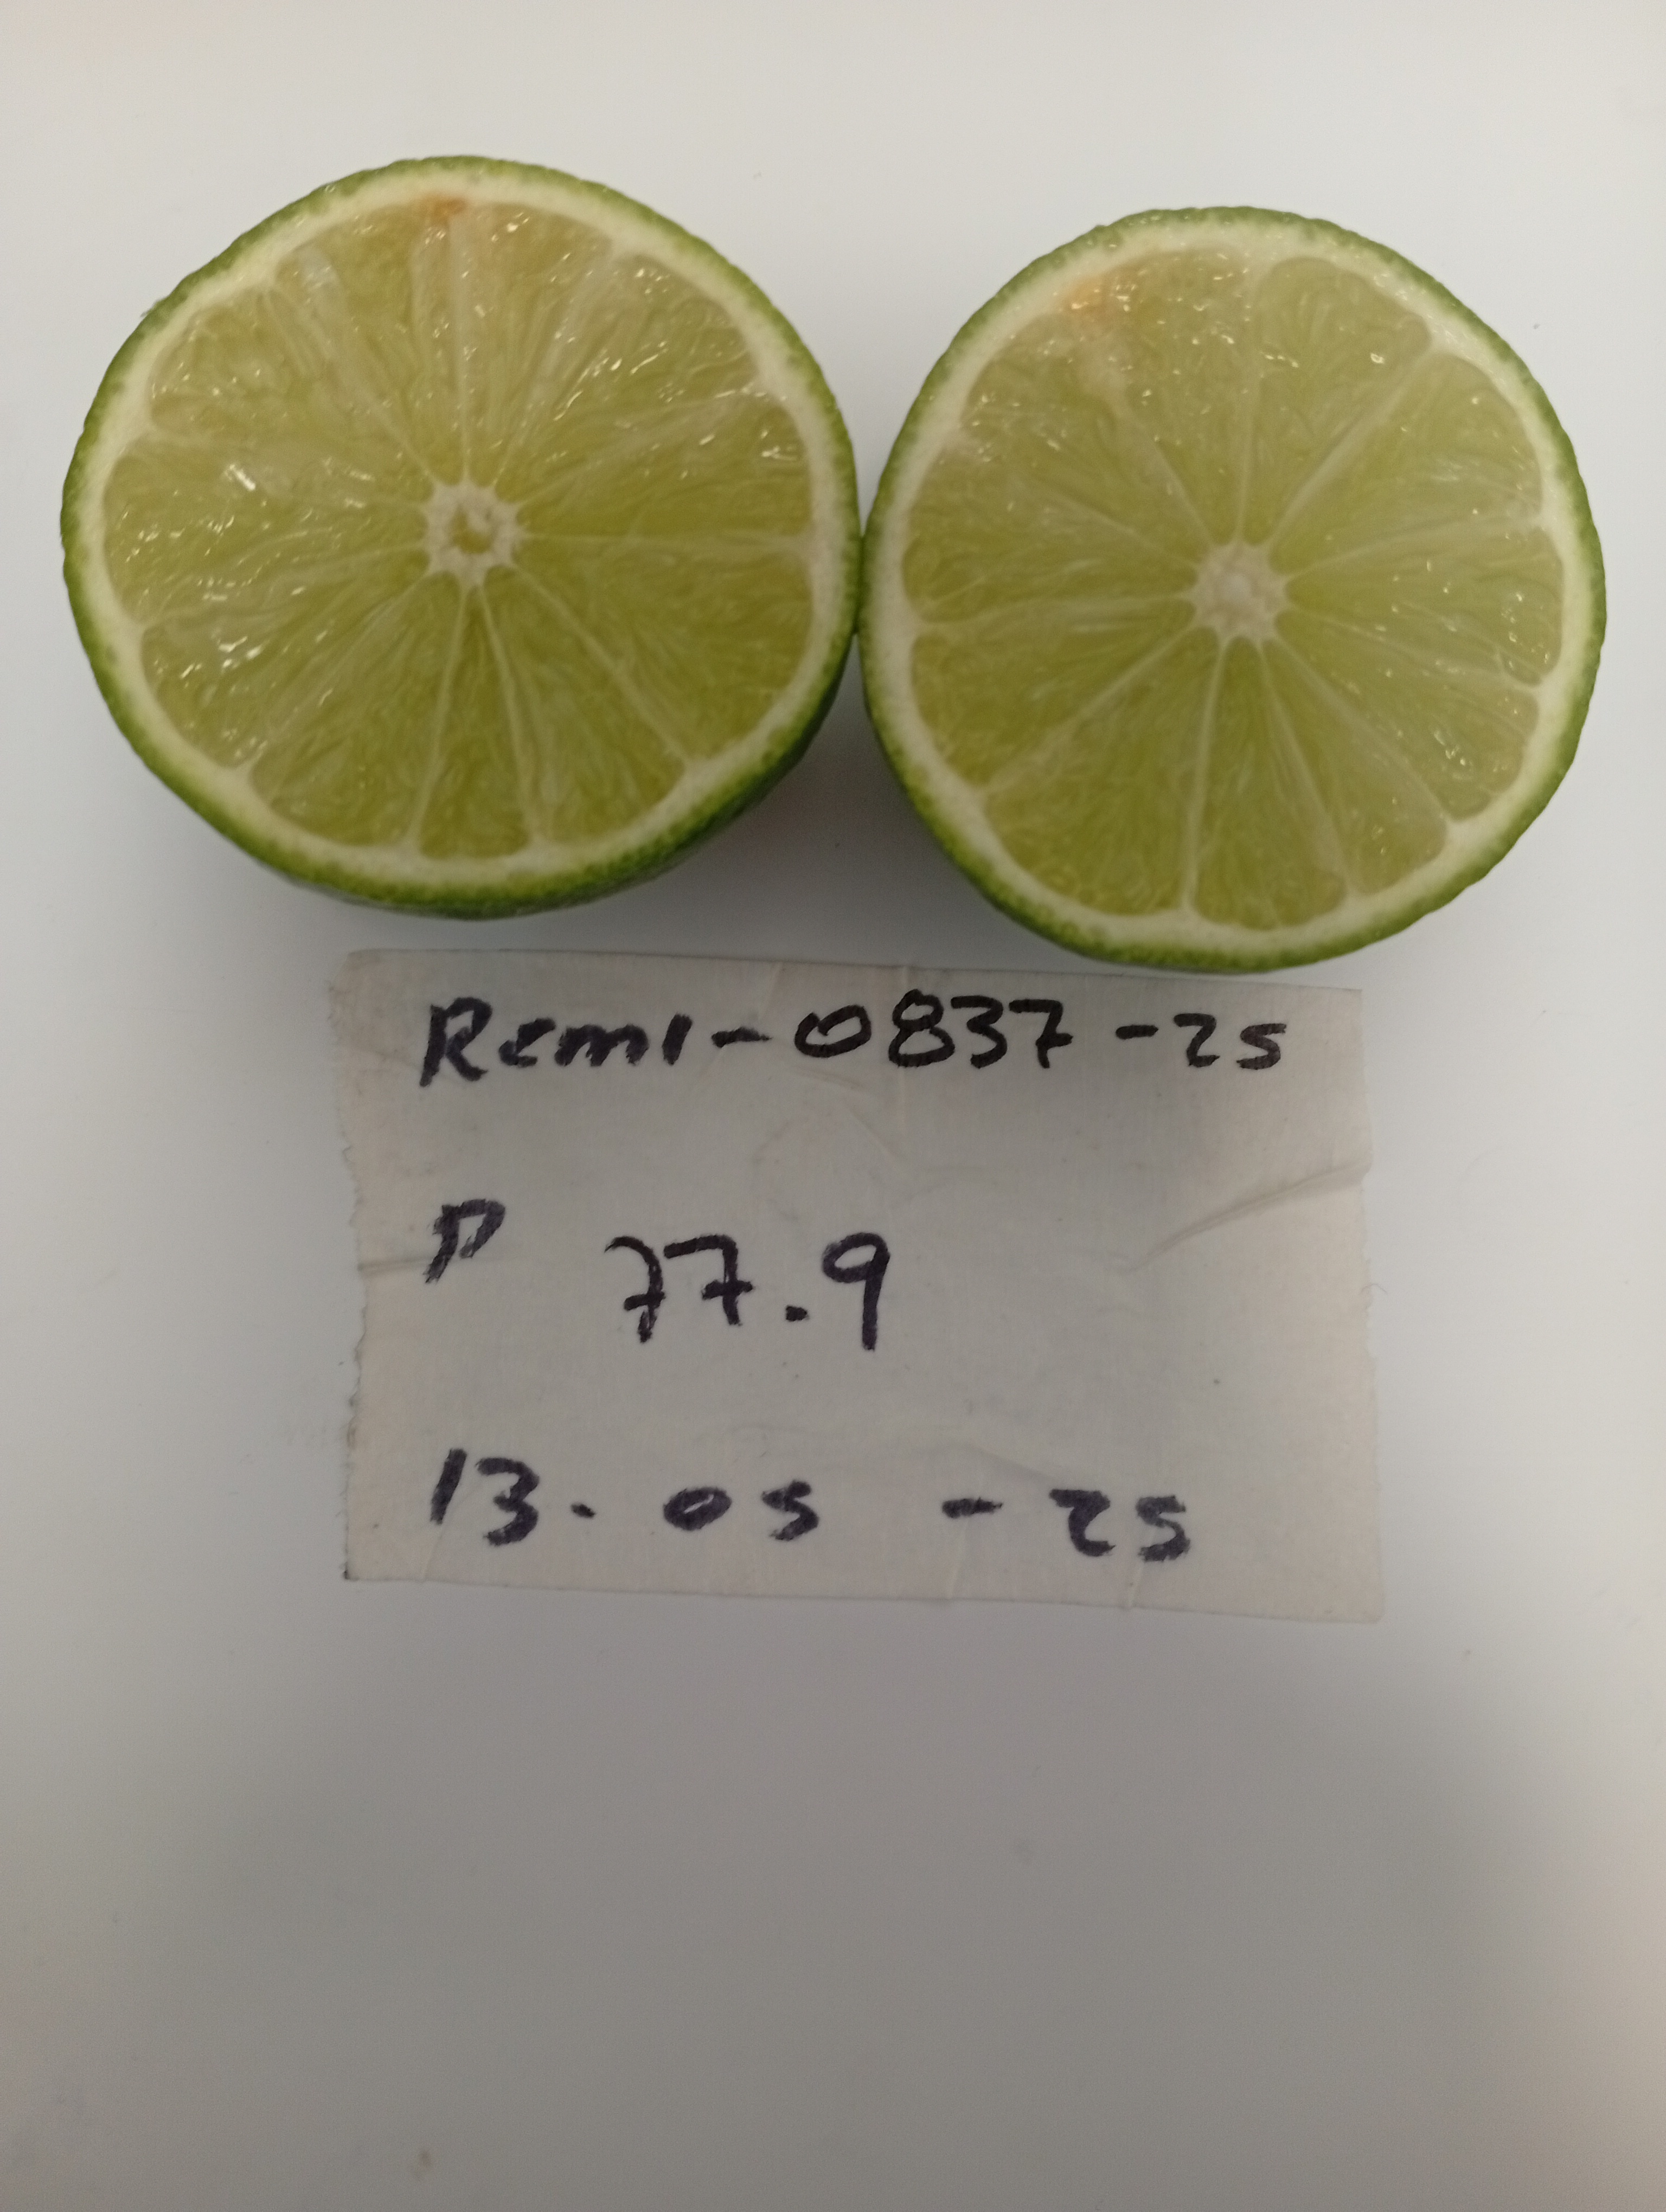 Remi-0837-25
P 77.9
13.05-25